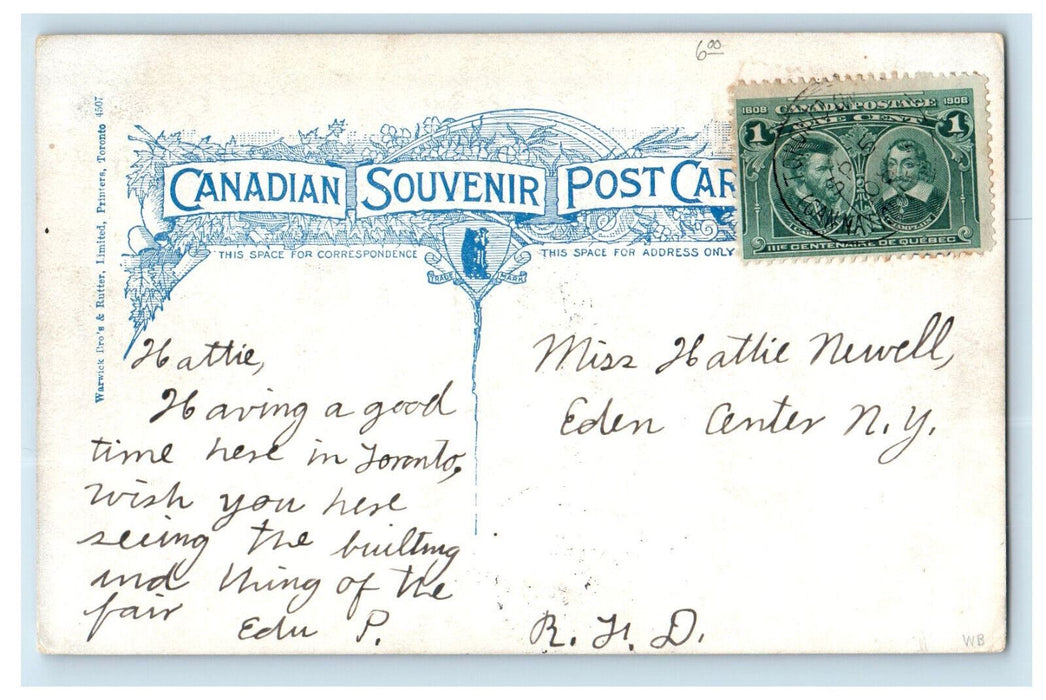 6.00
CANADIAN SOUVENIR POST CAR
THIS SPACE FOR CORRESPONDENCE
THIS SPACE FOR ADDRESS ONLY
TRADE MARK
Warwick Bro's & Rutter, Limited, Printers, Toronto 4507
1608 CANADA POSTAGE 1908
1 ONE CENT 1
IIIE CENTENAIRE DE QUÉBEC
Hattie,
Having a good
time here in Toronto,
wish you here
seeing the builting
and thing of the
fair
Edu P.
Miss Hattie Newell,
Eden Center N.Y.
R. F. D.
WB